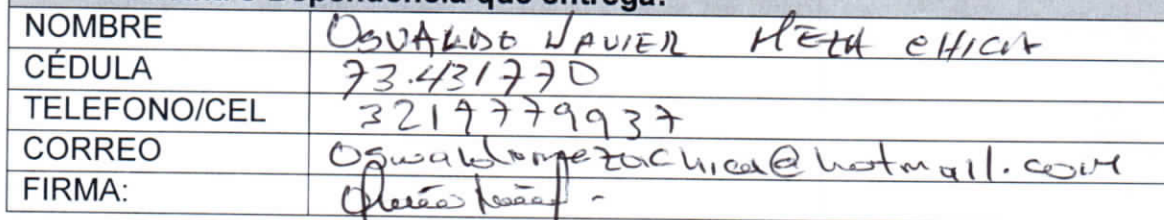 Dependencia que entrega:
NOMBRE OSVALDO JAVIER MEZA CHICA
CÉDULA 73.431770
TELEFONO/CEL 3219779937
CORREO Oswaldomezachica@hotmail.com
FIRMA: